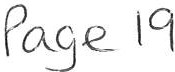 Page 19